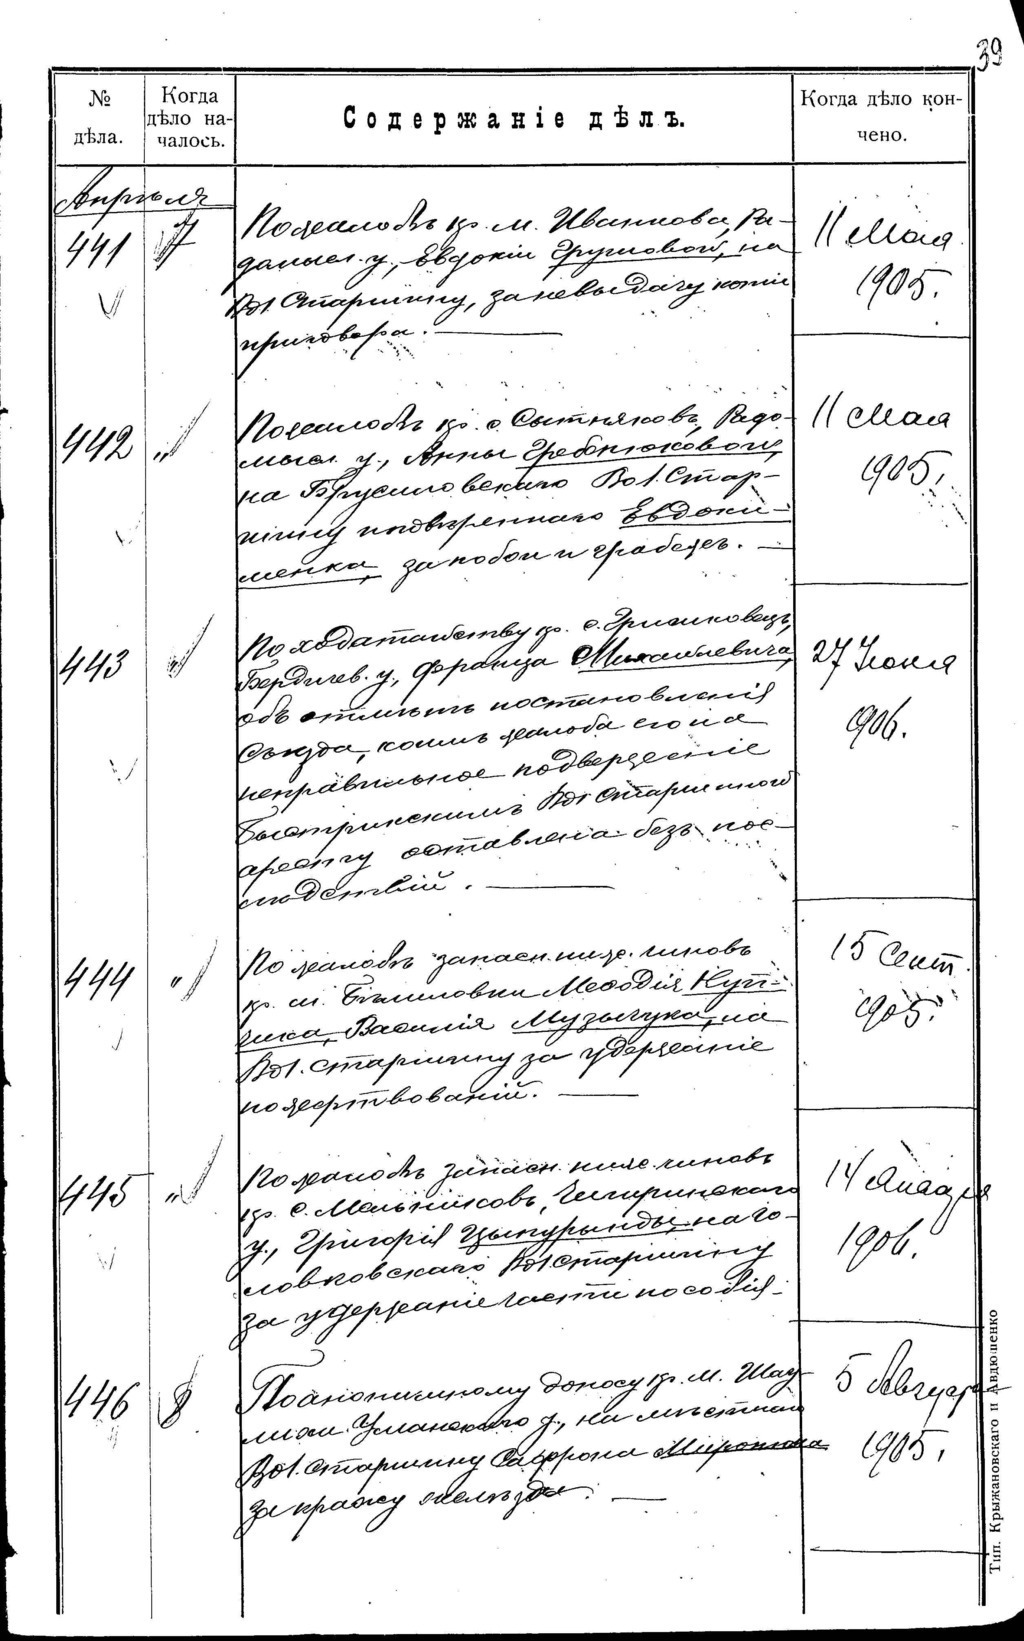 39
№ дѣла.
Когда дѣло началось.
Содержаніе дѣлъ.
Когда дѣло кончено.
Апрѣля
441 7
По жалобѣ кр. м. Иванкова, Ра-
домысл. у., Евдокіи на
Вол. Старшину, за невыдачу копіи
приговора.
11 Мая
1905.
442 "
По жалобѣ кр. с. Сытняковъ, Радо-
мысл. у., Анны Гребенюковой,
на Брусиловскаго Вол. Стар-
шину Евдоки-
менка, за побои и грабежъ.
11 Мая
1905.
443 "
По ходатайству кр. с. Гришковецъ,
Бердичев. у., Франца Михалкевича,
объ отмѣнѣ постановленія
Съѣзда, коимъ жалоба его на
неправильное подверженіе
Быстрикскимъ Вол. Старшиной
аресту оставлена безъ пос-
лѣдствій.
27 Іюня
1906.
444 "
По жалобѣ запасн. ниж. чиновъ
кр. м. Мефодія Куп-
чика, Василія Музычука, на
Вол. Старшину за удержаніе
пожертвованій.
15 Сент.
1905.
445 "
По жалобѣ запасн. ниж. чиновъ
кр. с. Мельниковъ, Чигиринскаго
у., Григорія на Го-
ловковскаго Вол. Старшину
за удержаніе части пособія.
14 Января
1906.
446 8
По анонимному доносу кр. м.
Уманскаго у., на мѣстнаго
Вол. Старшину Сафрона
за кражу желѣза.
5 Августа
1905.
Тип. Крыжановскаго и Авдюшенко